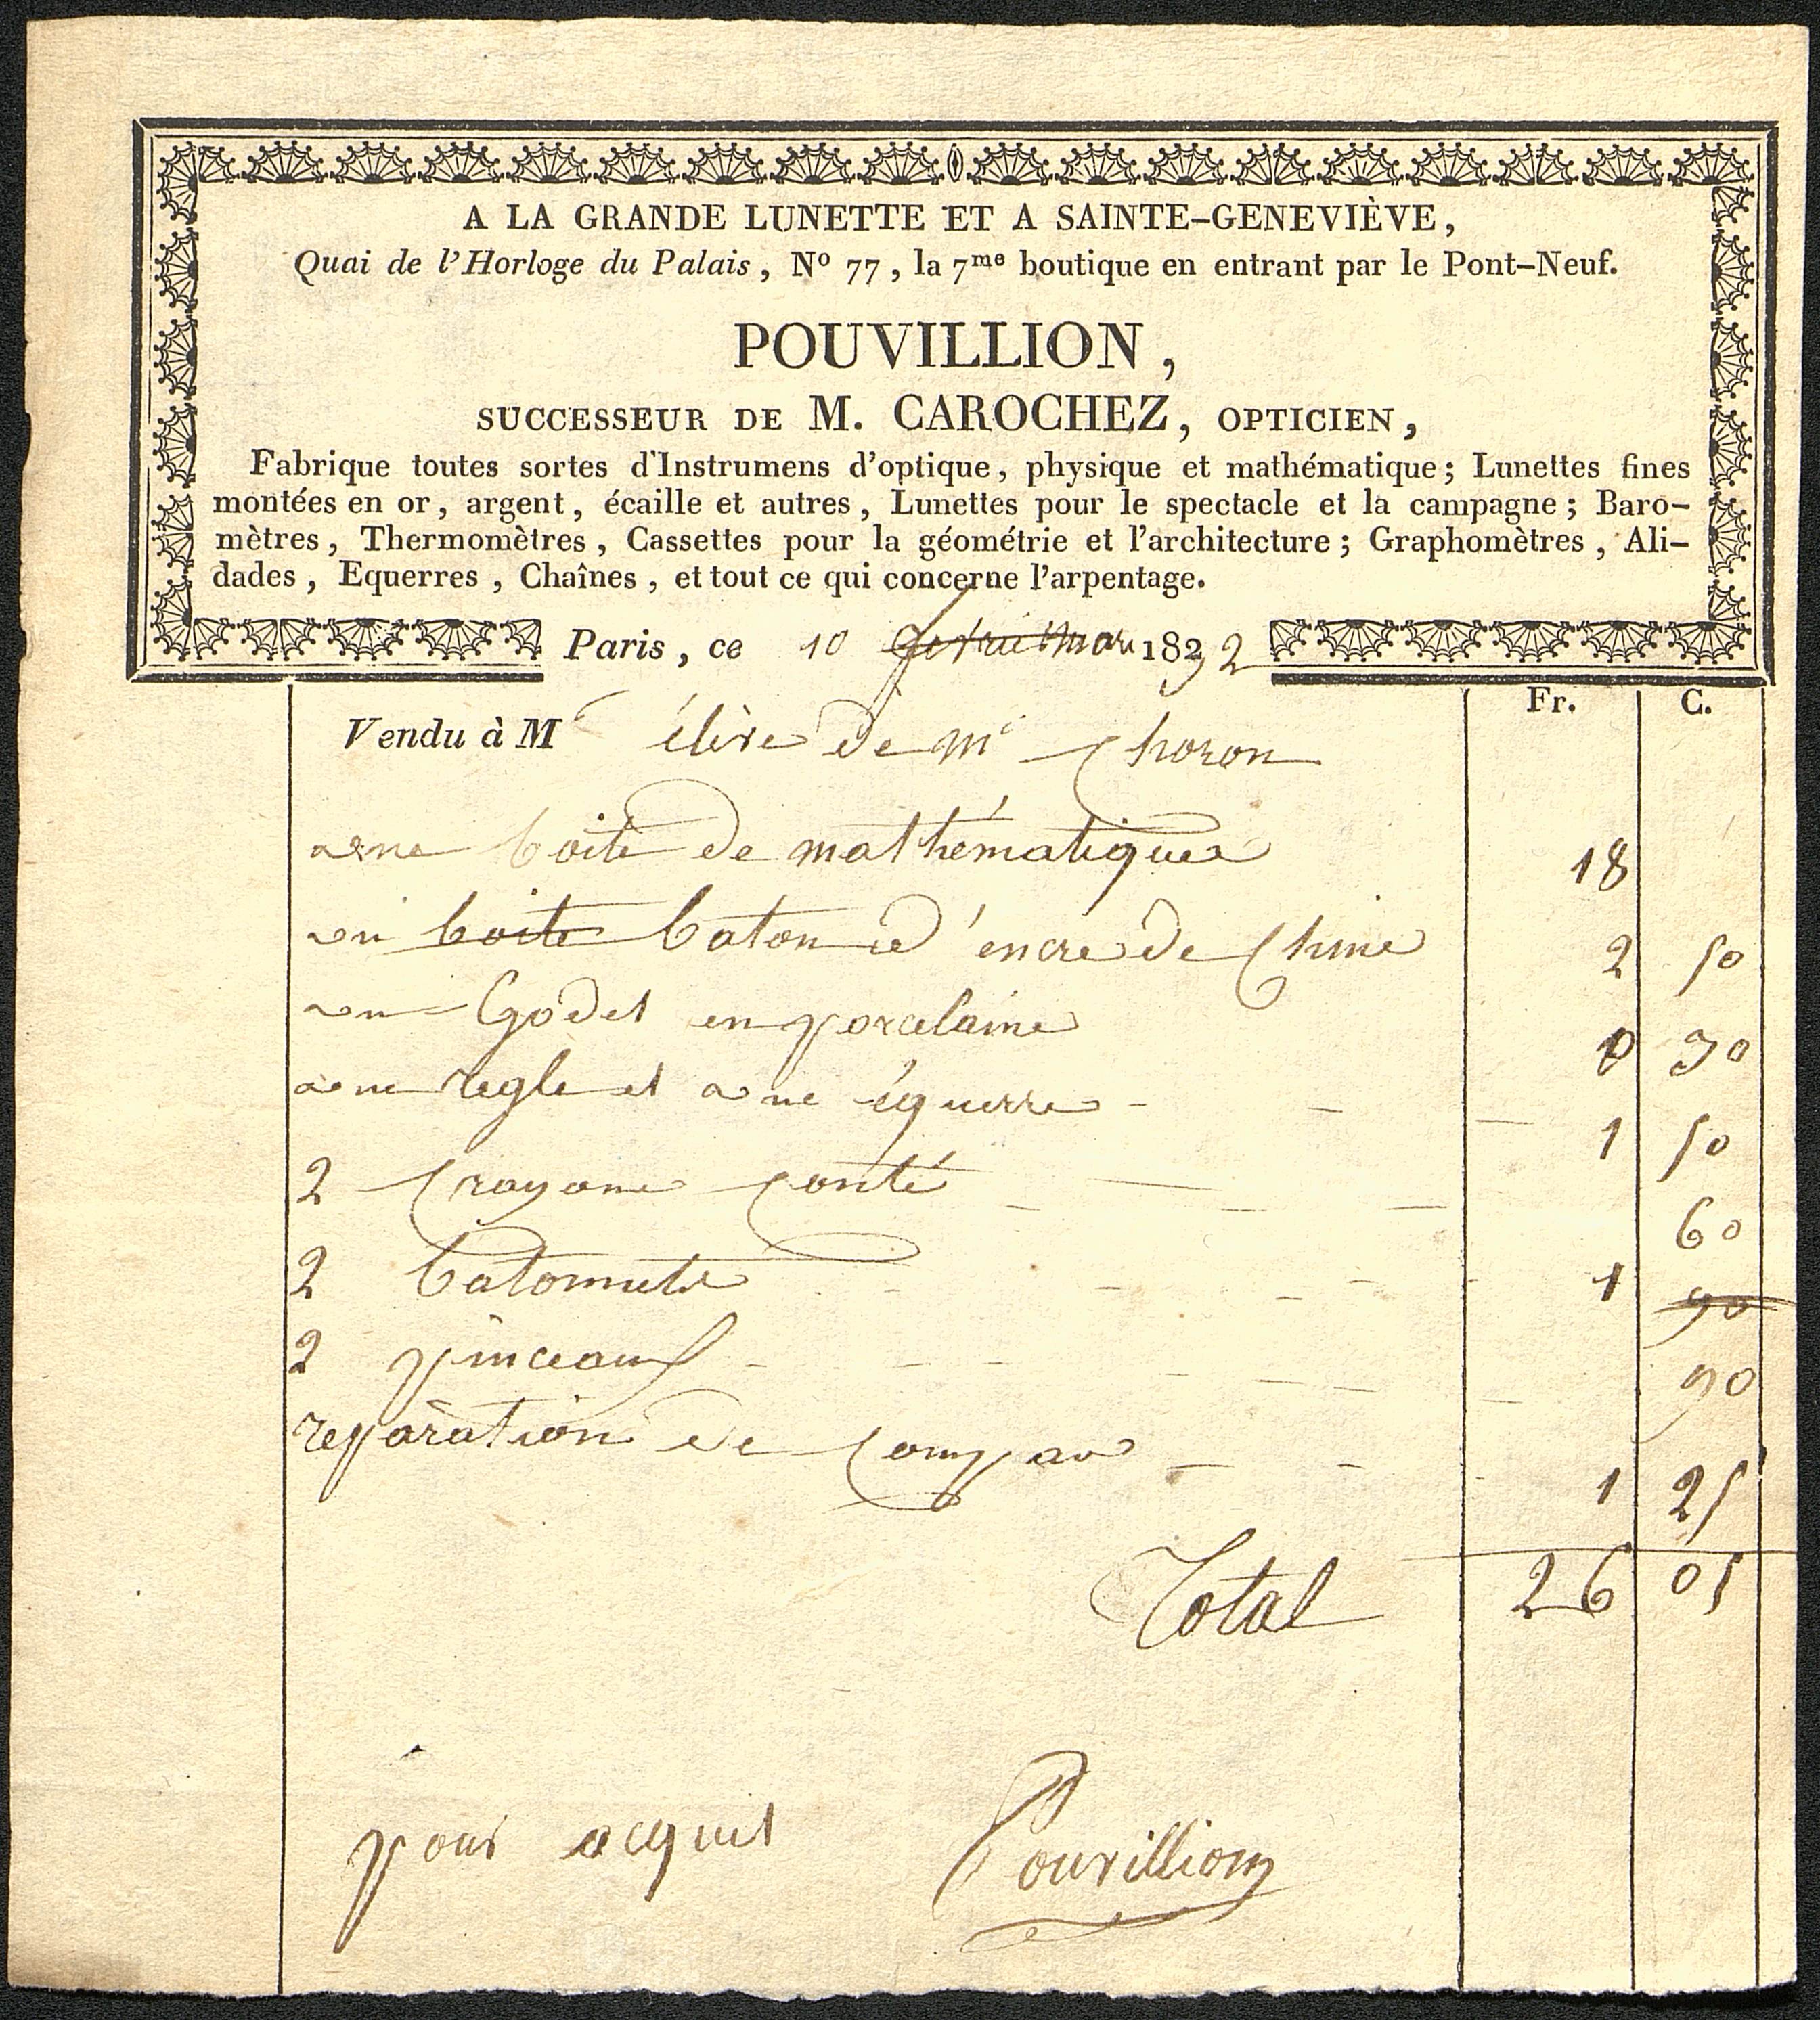 A LA GRANDE LUNETTE ET A SAINTE-GENEVIÈVE,
Quai de l'Horloge du Palais, Nº 77, la 7me boutique en entrant par le Pont-Neuf.
POUVILLION,
SUCCESSEUR DE M. CAROCHEZ, OPTICIEN,
Fabrique toutes sortes d'Instrumens d'optique, physique et mathématique; Lunettes fines
montées en or, argent, écaille et autres, Lunettes pour le spectacle et la campagne; Baro-
mètres, Thermomètres, Cassettes pour la géométrie et l'architecture; Graphomètres, Ali-
dades, Equerres, Chaînes, et tout ce qui concerne l'arpentage.
Paris, ce 10 mars 1832
Fr. C.
Vendu à Mr élève de Mr Choron
une boite de mathématiques 18
un boite baton d'encre de Chine 2 50
un Godet en porcelaine 0 30
une regle et une équerre 1 50
2 Crayons Conté 60
2 batonnets 1 90
2 pinceaux 90
reparation de Compas 1 25
Total 26 05
pour acquit Pouvillion